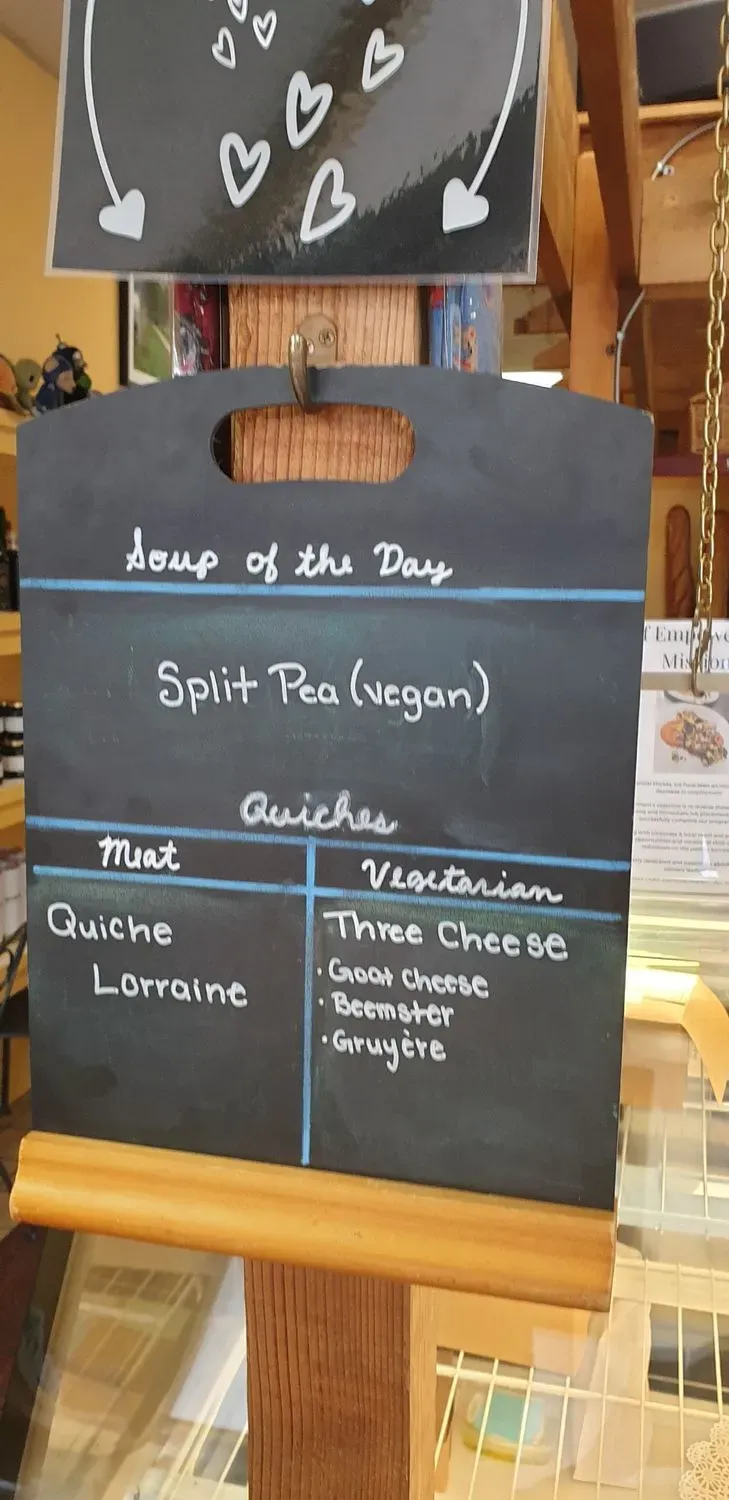 Soup of the Day
Split Pea (vegan)
Quiches
Meat
Vegetarian
Quiche
Lorraine
Three Cheese
• Goat cheese
• Beemster
• Gruyère
Mission